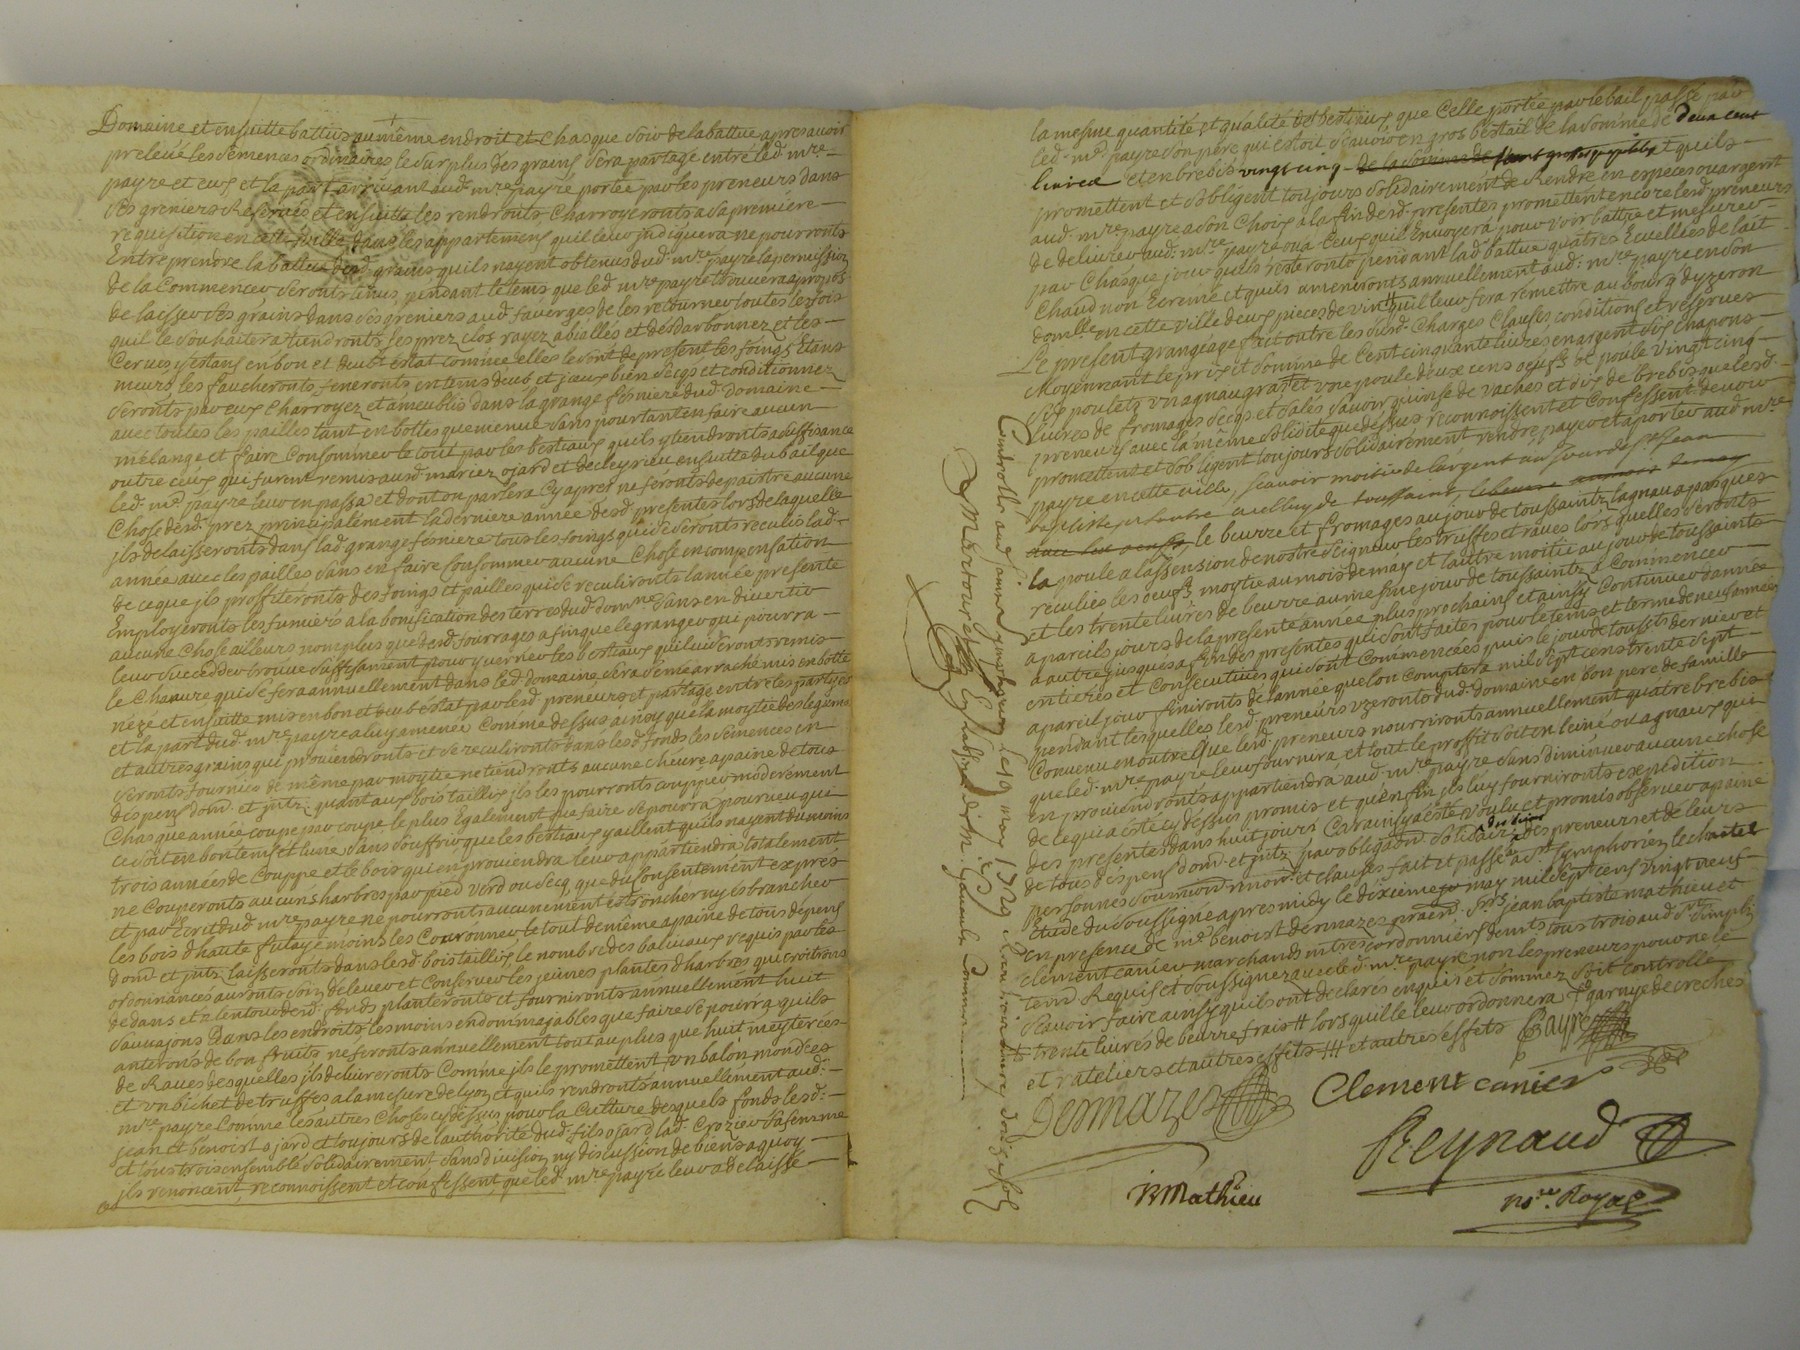 Domaine et ensuitte battus au même endroit et chasque soir de la battue apres avoir
prelevé les semences ordinaires le surplus des grains sera partagé entre led. mre
payre et eux et la part arrivant aud. mre payre portée par les preneurs dans
ses greniers Reservés et ensuitte les rendronts Charroyeronts a sa premiere
requisition en cette ville dans les appartemens quil leur indiquera ne pourronts
Entreprendre la battue desd. grains quils nayent obtenus dud. mre payre la permission
de la Commencer seronts tenus pendant le tems que led mre payre trouvera apropos
de laisser ses grains dans ses greniers aud. faverges de les retourner toutes les fois
quil le souhaitera tiendronts les prez clos rayez abiallés et desdarbonnez et les
Cerues estans en bon et deubt estat comme elles le sont de present les foings Etans
meurs les faucheronts feneronts en tems deub et iceux bien secqs et conditionnez
seronts par eux Charroyez et ameublis dans la grange feniere dud Domaine
avec toutes les pailles tant en bottes que menue sans pour tant en faire aucun
mélange et faire Consommer le tout par les bestiaux quils y tiendronts a suffisance
outre ceux qui furent remis aud. marcez ojard et decleyrieu ensuitte du bail que
led. mre payre leur en passa et dont on parlera cy apres ne feronts depaistre aucune
Chose desd. prez principalement la derniere année desd. presentes lors de laquelle
ils delaisseronts dans lad. grange feniere tous les foings qui de seronts reculis lad.
année avec les pailles sans en faire Consommer aucune Chose en compensation
de ce que ils proffiteronts des foings et pailles qui se reculiront l'année presente
Employeronts les fumiers a la bonification des terres dud. domne sans en divertir
aucune Chose ailleurs non plus que desd. fourrages afin que le granger qui pourra
leur succeder trouve suffisament pour yverner les bestiaux qui lui seronts remis
le Chanvre qui se fera annuellement dans led. Domaine sera semé arraché mis en botte
neze et ensuitte mis en bon et deub estat par lesd preneurs et partagé entre les partyes
et la part dud. mre payre a luy amenée Comme dessus ainsy que la moytié des legumes
et autres grains qui proviendronts et se reculironts dans lesd. fonds les semences en
seronts fournies de même par moytié ne tiendronts aucune chevre a paine de tous
despens dom. et jnts. quant aux bois taillix ils les pourronts coupper moderement
Chasque année coupe par coupe le plus Egalement que faire se pourra pourveu que
ce soit en bon tems et lune sans souffrir que les bestiaux y aillent quils nayent du moins
trois années de Couppe et le bois qui en proviendra leur appartiendra totalement
ne Couperonts aucuns harbres par pied verd ou secq que du Consentement expres
et par Ecrit dud. mre payre ne pourront aucunement estroncher ny esbrancher
les bois d'haute futaye moins les Couronner le tout de même apaine de tous depens
dom. et jnts. laisseronts dans lesd. bois taillix le nombre des baliveaux requis par les
ordonnances auronts soin deslever et Conserver les jeunes plantes d'harbres qui croitrons
dedans et a lentour desd. fonds planteronts et fourniront annuellement huit
sauvageons Dans les endroits les moins endommajables que faire se pourra quils
anteronts de bon fruits ne feronts annuellement tout au plus que huit meyterées
de Raves desquelles ils delivreronts Comme ils le promettent un balon mondées
et un bichet de truffes a la mesure de lyon et quils rendronts annuellement aud.
mre payre Comme les autres Choses cy dessus pour la Culture desquels fonds lesd.
jean et benoist ojard et toujours de l'authorité dud. fils ojard lad. Crozier sa femme
et tous trois ensemble solidairement sans division ny discussion de biens a quoy
ils renoncent, reconnoissent et confessent que led. mre payre leur a delaissé
la mesme quantité et qualité de bestiaux que Celle portée par le bail passé par
led. mre payre son père qui estoit sçavoir en gros bestail de la somme de deux cent
livres et en brebis vingt cinq et quils
promettent et sobligent toujours solidairement de Rendre en especes ou argent
aud. mre payre a son Choix a la fin desd. presentes promettent encore lesd. preneurs
de delivrer aud. mre payre ou a Ceux quil Envoyera pour voir battre et mesurer
par Chasque jour quils resteronts pendant lad. battue quatres Ecuelliés de lait
Chaud non Ecremé et quils ameneront annuellement aud. mre payre en son
domlle en cette ville deux pieces de vin quil leur fera remettre au bourg dyzeron
Le present grangeage fait outre les susd. Charges Clauses conditions et reserves
Moyennant le prix et somme de Cent cinquante livres en argent six chapons
six poulets un agnau gras et une poule deux cens oeufs de poule vingt cinq
livres de fromages secqs et salés savoir quinse de vaches et dix de brebis que lesd.
preneurs avec la même solidité que dessus reconnoissent et Confessent devoir
promettent et sobligent toujours solidairement rendre payer et porter aud. mre
payre en cette ville scavoir moitié de l'argent au jour de st. jean
baptiste et lautre a celluy de toussaint,
le beurre et fromages au jour de toussaintz lagnau a pasques
la poule a lassension de nostre seigneur les truffes et raves lors quelles seronts
reculies les oeufs moytié au mois de may et l'autre moitié au jour de toussaints
et les trente livres de beurre au mesme jour de toussaintz a Commencer
a pareils jours de la presente année plus prochains et ainsy Continuer d'année
a autre jusques a fin des presentes qui sont faites pour le tems et terme de neuf années
entieres et Consecutives qui sont Commencées puis le jour de toussts dernier et
a pareil jour finironts de l'année que lon comptera mil sept cens trente sept
pendant lesquelles lesd. preneurs uzeronts dud. domaine en bon pere de famille
Convenu en outre Que lesd. preneurs nourrironts annuellement quatre brebis
que led. mre payre leur fournira et tout le proffit soit en leine ou agnaux qui
en proviendronts appartiendra aud. mre payre sans diminuer aucune chose
de ce qui a esté cy dessus promis et quen fin ils luy fourniront expedition
des presentes dans huit jours Car ainsy a esté voulu et promis observer apaine
de tous despens dom. et jntz. par obligaon. solidaire des biens des preneurs et de leurs
personnes soumoins renons et clauses fait et passé a st. symphorien le chatel
Etude du soussigné apres midy le dixieme may mil sept cens vingt neuf
en presence de me benoist dermazes praen. srs. jean baptiste mathieu et
clement canier marchands mtres cordonniers demts tous trois aud st. simph.
tems Requis et soussignez avec led. mre payre non les preneurs pour ne le
scavoir faire ainsy quils ont declarés enquis et sommez soit controllé
trente livres de beurre frais # lors quille leur ordonnera garnye de creches
et rateliers et autres effets ## et autres effets Payre
Dermazes
Clement canier
Reynaud
B Mathieu
nre. Royal
Controllé aud. st. simphorien le 19 may 1729